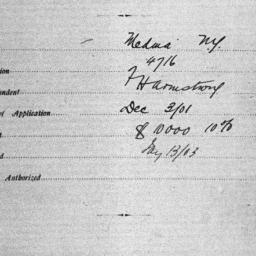 Medina NY.
ion 4716
ndent F Harmstrong
of Application Dec 3/01
$ 10000 10%
d May 13/03
Authorized